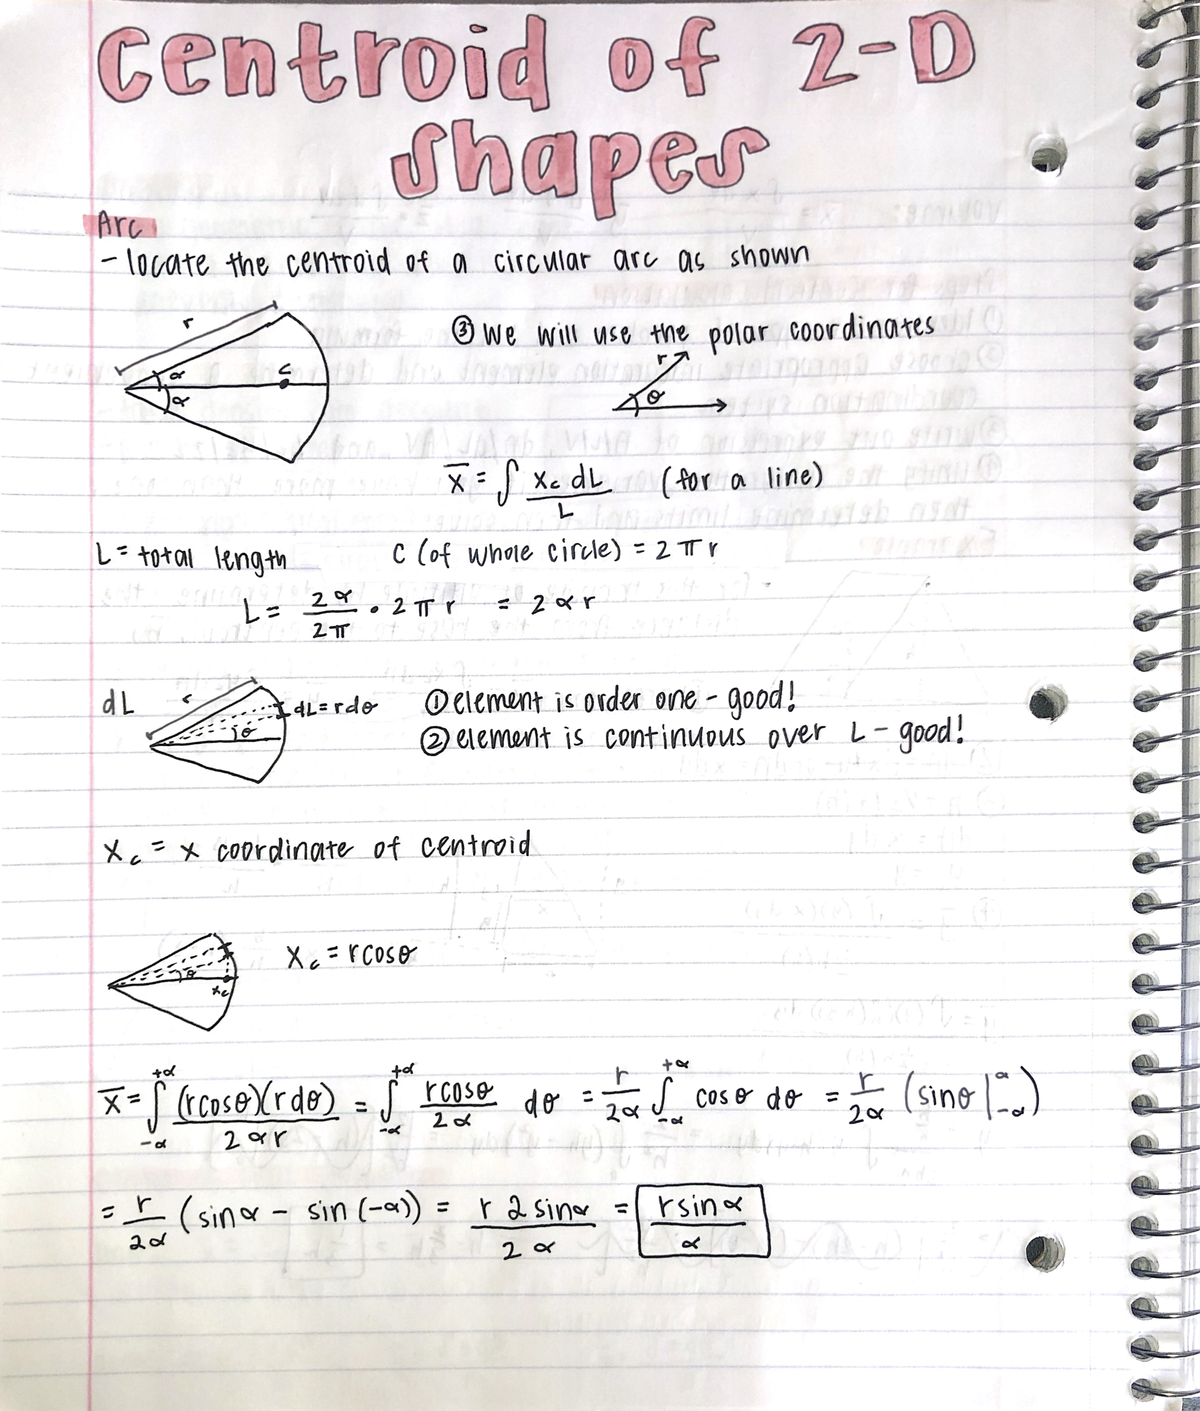 Centroid of 2-D
Shapes
Arc
- locate the centroid of a circular arc as shown
r
α
α
C
③ We will use the polar coordinates
r
θ
x̄ = ∫ x_c dL / L (for a line)
L = total length
C (of whole circle) = 2πr
L = 2α/2π • 2πr = 2αr
dL
r
θ
dL = rdθ
① element is order one - good!
② element is continuous over L - good!
x_c = x coordinate of centroid
θ
x_c
x_c = rcosθ
x̄ = ∫_{-α}^{+α} (rcosθ)(rdθ) / 2αr = ∫_{-α}^{+α} rcosθ / 2α dθ = r/2α ∫_{-α}^{+α} cosθ dθ = r/2α (sinθ |_{-α}^{α})
= r/2α (sinα - sin(-α)) = r 2 sinα / 2α = rsinα / α